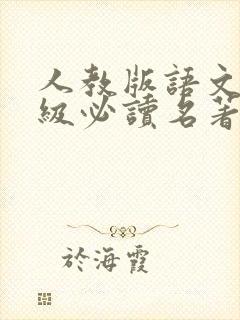 人教版語文
級必讀名著
於海霞